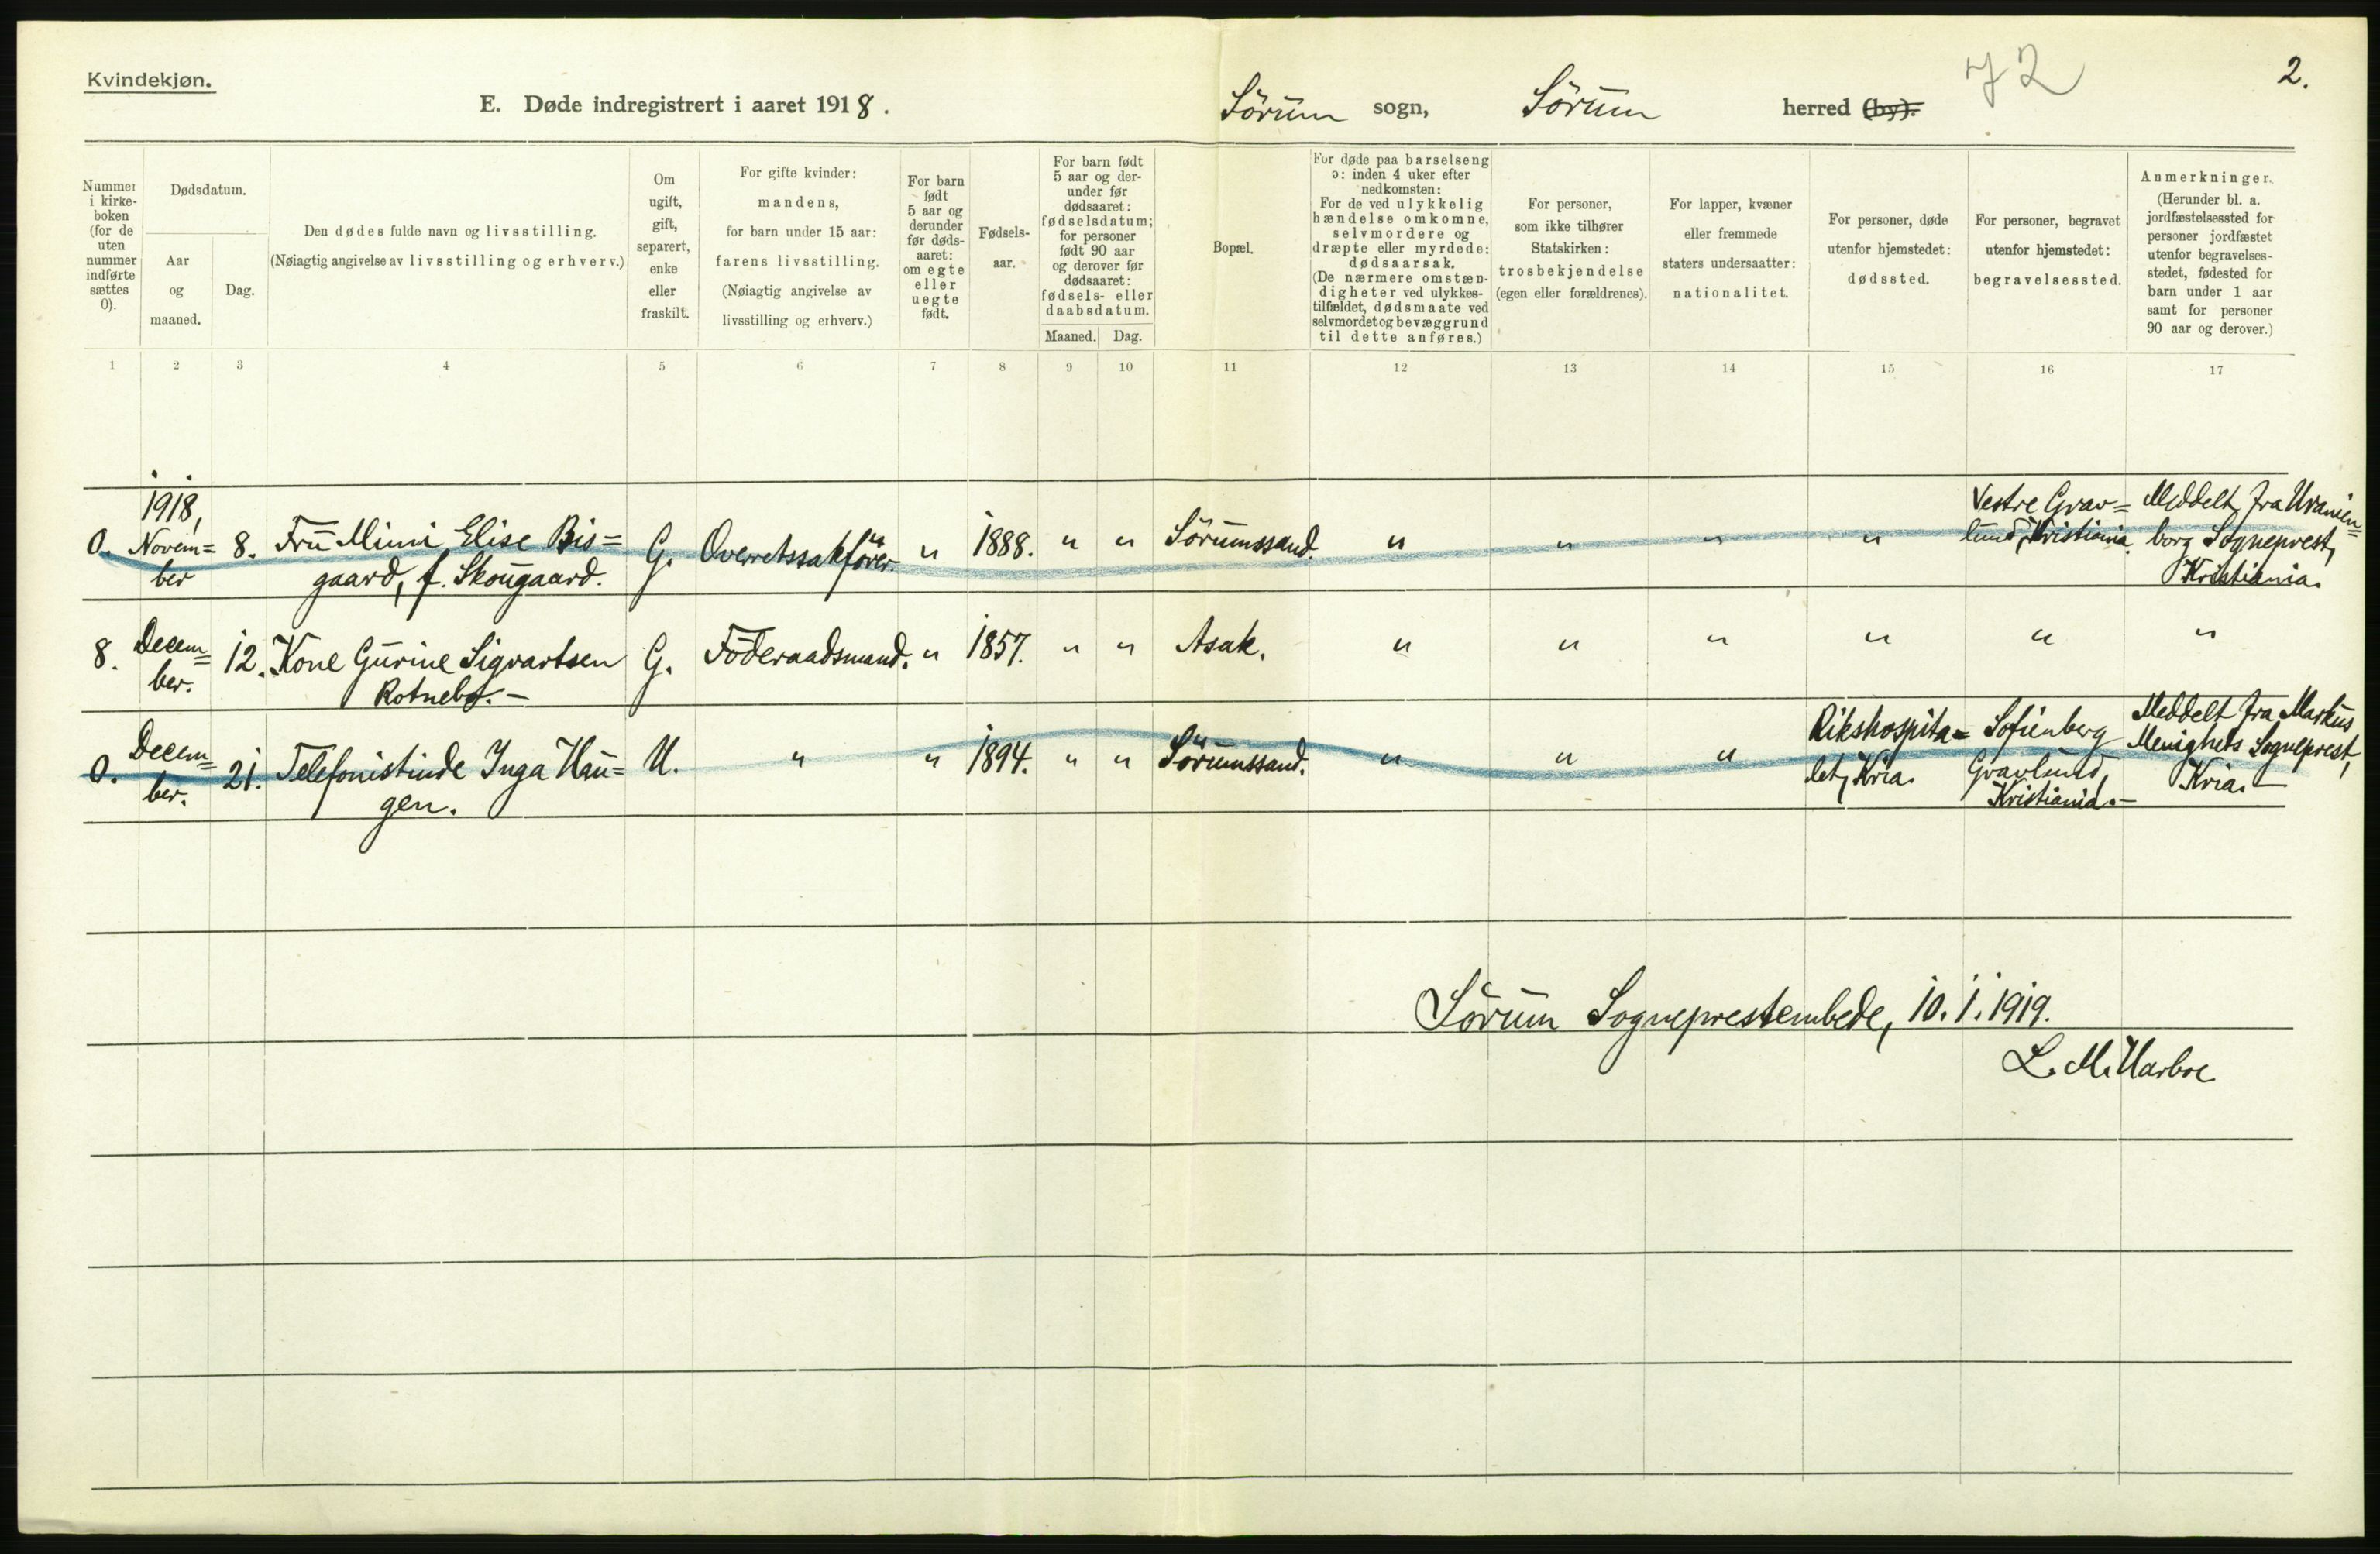 Kvindekjøn.
72
2.
E. Døde indregistrert i aaret 1918.
Sörum sogn, Sörum herred (by).
Nummer
i kirke-
boken
(for de
uten
nummer
indførte
sættes
0).
Dødsdatum.
Aar
og
maaned.
Dag.
Den dødes fulde navn og livsstilling.
(Nøiagtig angivelse av livsstilling og erhverv.)
Om
ugift,
gift,
separert,
enke
eller
fraskilt.
For gifte kvinder:
mandens,
for barn under 15 aar:
farens livsstilling.
(Nøiagtig angivelse av
livsstilling og erhverv.)
For barn
født
5 aar og
derunder
før døds-
aaret:
om egte
eller
uegte
født.
Fødsels-
aar.
For barn født
5 aar og der-
under før
dødsaaret:
fødselsdatum;
for personer
født 90 aar
og derover før
dødsaaret:
fødsels- eller
daabsdatum.
Maaned. Dag.
Bopæl.
For døde paa barselseng
ɔ: inden 4 uker efter
nedkomsten:
For de ved ulykkelig
hændelse omkomne,
selvmordere og
dræpte eller myrdede:
dødsaarsak.
(De nærmere omstæn-
digheter ved ulykkes-
tilfældet, dødsmaate ved
selvmordet og bevæggrund
til dette anføres.)
For personer,
som ikke tilhører
Statskirken:
trosbekjendelse
(egen eller forældrenes).
For lapper, kvæner
eller fremmede
staters undersaatter:
nationalitet.
For personer, døde
utenfor hjemstedet:
dødssted.
For personer, begravet
utenfor hjemstedet:
begravelsessted.
Anmerkninger.
(Herunder bl. a.
jordfæstelsessted for
personer jordfæstet
utenfor begravelses-
stedet, fødested for
barn under 1 aar
samt for personer
90 aar og derover.)
1 2 3 4 5 6 7 8 9 10 11 12 13 14 15 16 17
1918,
0. Novem= 8. Fru Mimi Elise Bis= G. Overretssakfører. " 1888. " " Sörumssand. " " " " Vestre Grav= Meddelt fra Uranien=
ber gaard, f. Skougaard. lund, Kristiania. borg Sogneprest,
Kristiania.
8. Decem= 12. Kone Gurine Sigvartsen G. Föderaadsmand. " 1857. " " Asak. " " " " " "
ber. Rotnebø.-
0. Decem= 21. Telefonistinde Inga Hau= U. " " 1894. " " Sörumssand. " " " Rikshospita= Sofienberg Meddelt fra Markus
ber. gen. let, Kria. Gravlund, Menighets Sogneprest,
Kristiania.- Kria.-
Sörum Sogneprestembede, 10.1.1919.
L. M. Harboe